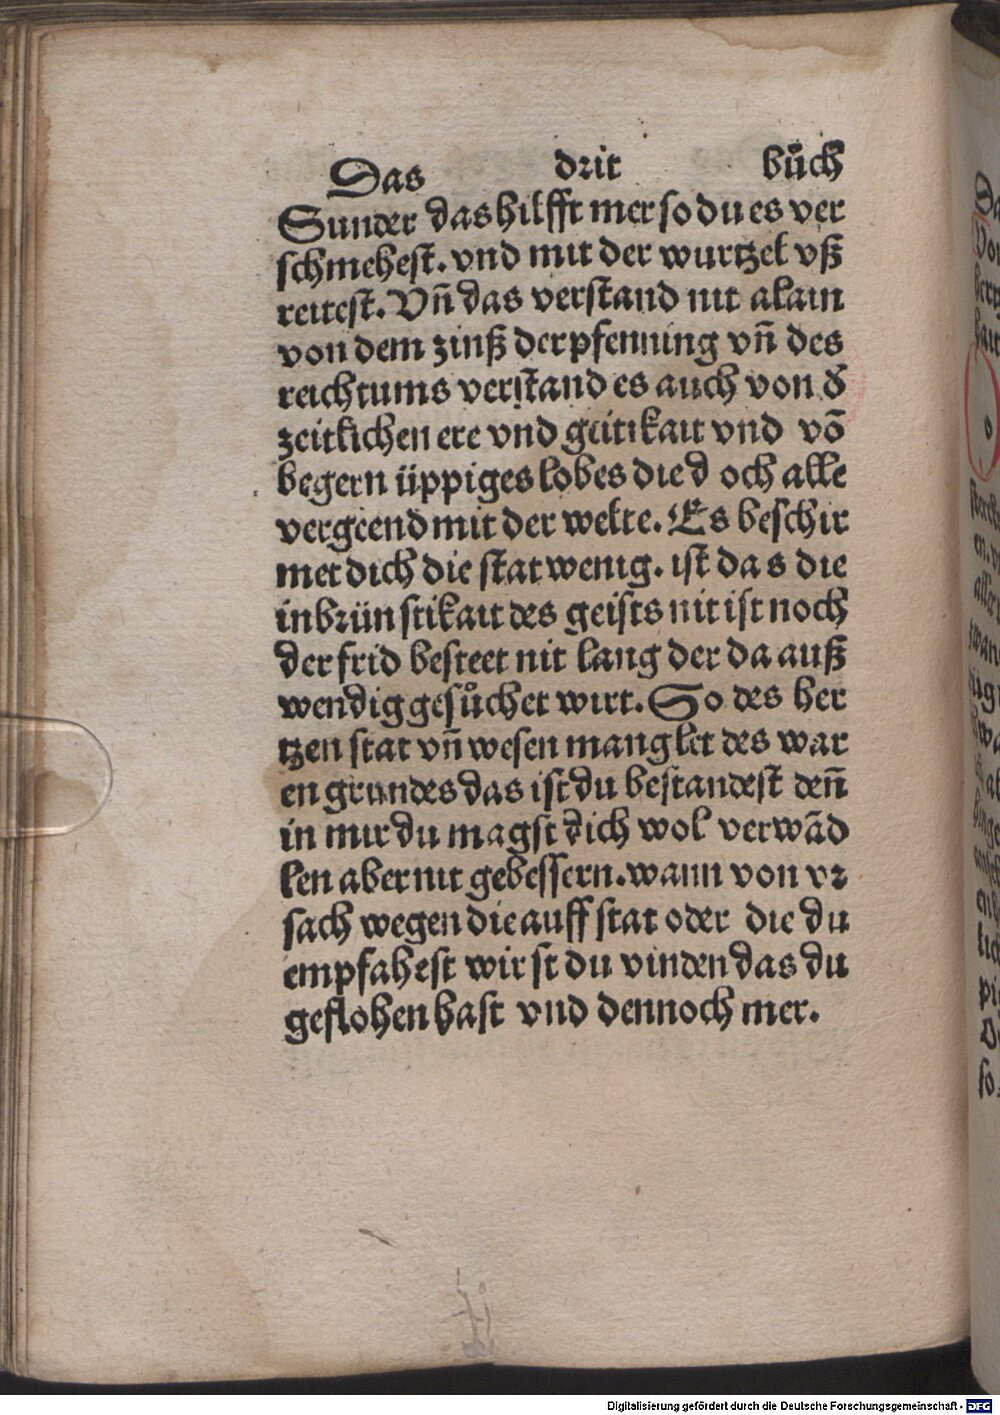 Das drit bůch
Sunder das hilfft mer so du es ver
schmehest. vnd mit der wurtzel vß
reitest. Vñ das verstand nit alain
von dem zinß der pfenning vñ des
reichtums verstand es auch von ď
zeitlichen ere vnd geitikait vnd võ
begern üppiges lobes die d och alle
vergeend mit der welte. Es beschir
met dich die stat wenig. ist das die
inbrünstikait des geists nit ist noch
der frid besteet nit lang der da auß
wendig gesůchet wirt. So des her
tzen stat vñ wesen manglet des war
en grundes das ist du bestandest deñ
in mir du magst dich wol verwãd
len aber nit gebessern. wann von vr
sach wegen die auff stat oder die du
empfahest wirst du vinden das du
geflohen hast vnd dennoch mer.
Digitalisierung gefördert durch die Deutsche Forschungsgemeinschaft - DFG